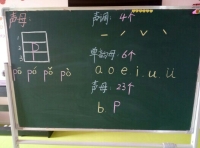 声母
声调 4个
ˉ ˊ ˇ ˋ
1
2
3
p
pō pó pǒ pò
单韵母 6个
a o e i u ü
声母 23个
b p